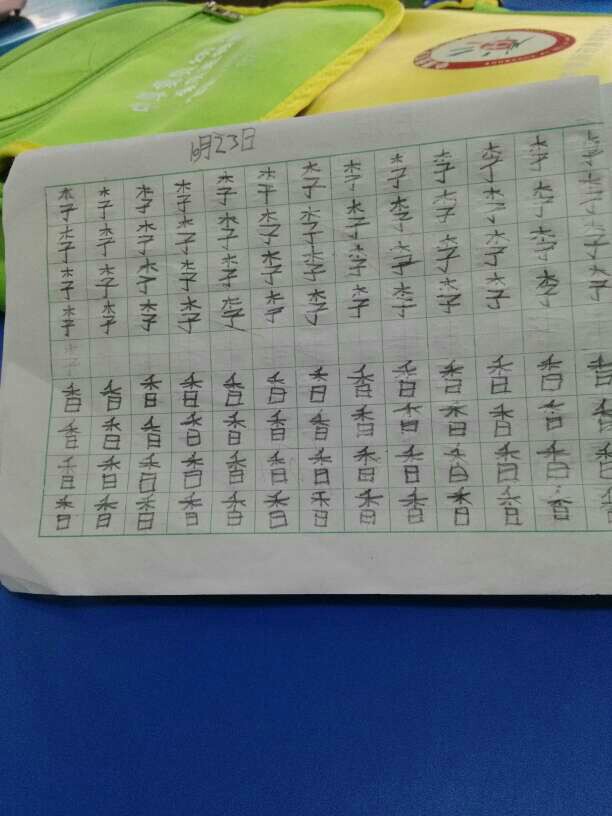 10月23日
李李李李李李李李李李李李李
李李李李李李李李李李李李李
李李李李李李李李李李李李李
李李李李李李李李李李李李李
香香香香香香香香香香香香香
香香香香香香香香香香香香香
香香香香香香香香香香香香香
香香香香香香香香香香香香香